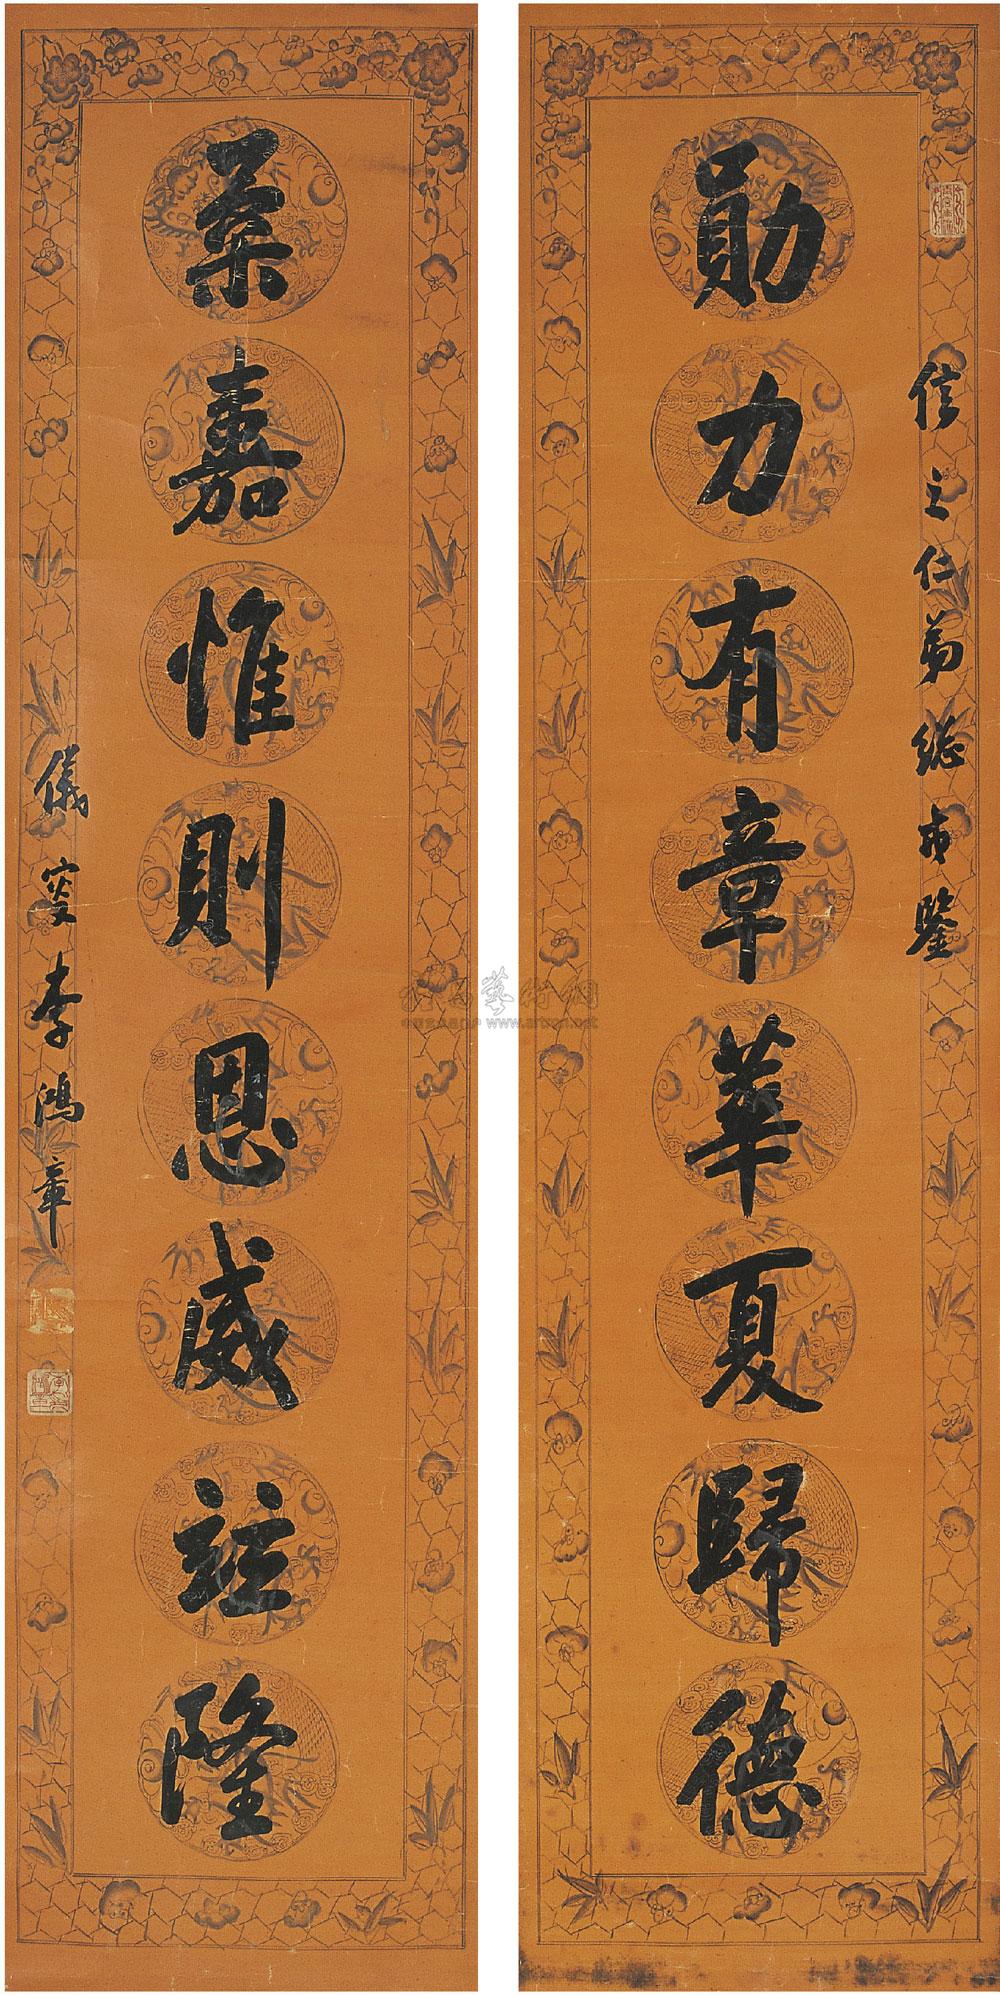 信之仁弟總戎鑒
勛力有章華夏歸德
柔嘉惟則恩威竝隆
儀叟李鴻章
雅昌藝術網
www.artron.net